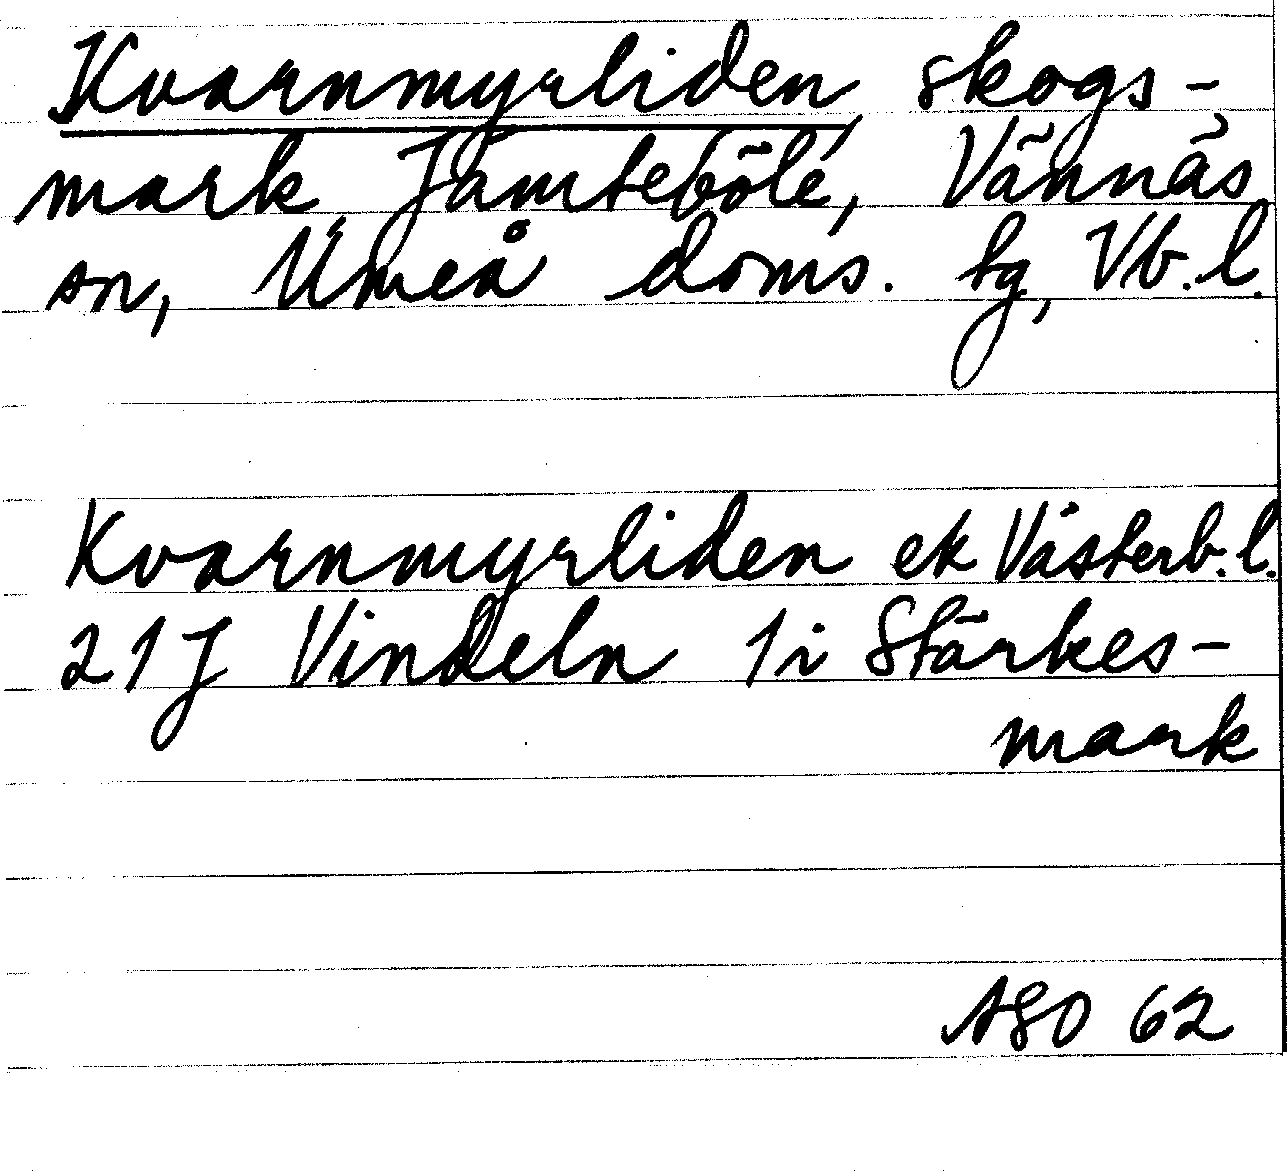 Kvarnmyrliden skogs-
mark Jämteböle, Vännäs
sn, Umeå doms. tg, Vb.l.
Kvarnmyrliden ek Västerb.l.
21J Vindeln 1i Stärkes-
mark
ASO 62